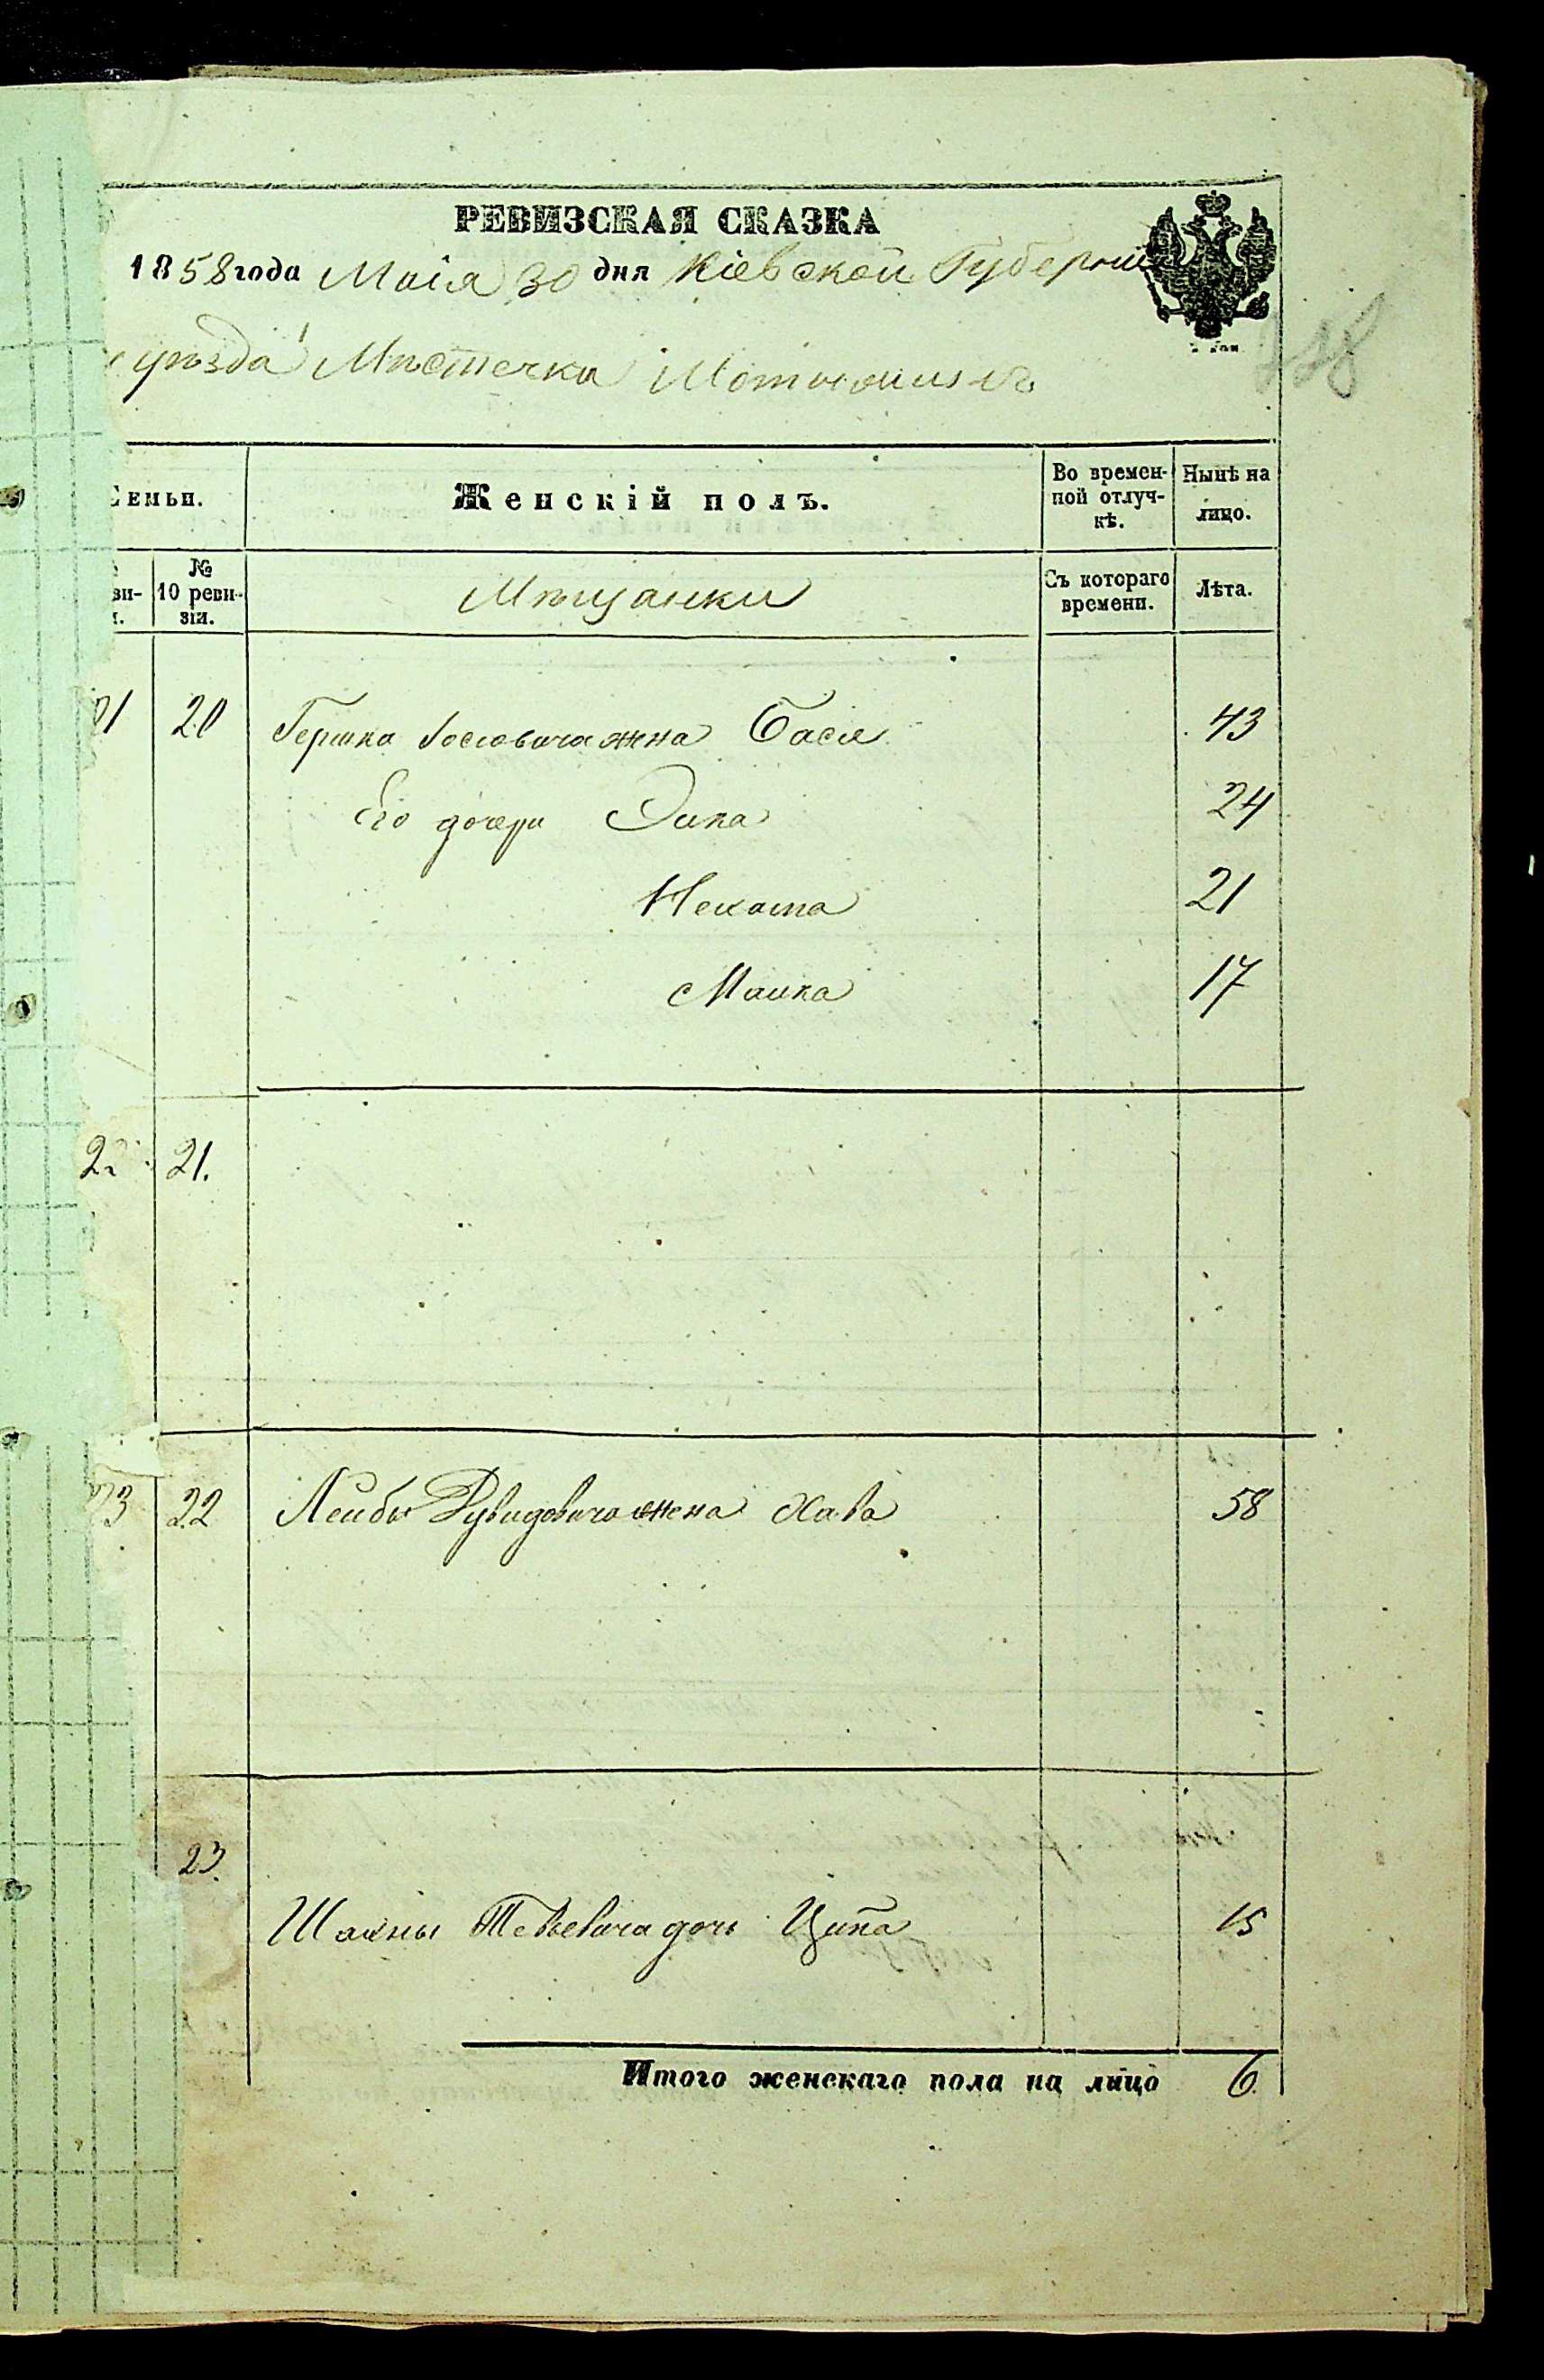 РЕВИЗСКАЯ СКАЗКА
1858 года Маія 30 дня Кіевской Губерніи
уѣзда Мѣстечка
Семьи. Женскій полъ. Во времен-ной отлуч-кѣ. Нынѣ на лицо.
№ 10 реви-зіи. Мѣщанки Съ котораго времени. Лѣта.
20 Гершка Іосіовича жена Бася 43
Его дочери Эйка 24
Нехама 21
Малка 17
22 21.
22 Лейбы Рувидовича жена Хава 58
23.
Шахны Тевьевича дочь Ципа 15
Итого женскаго пола на лицо 6.